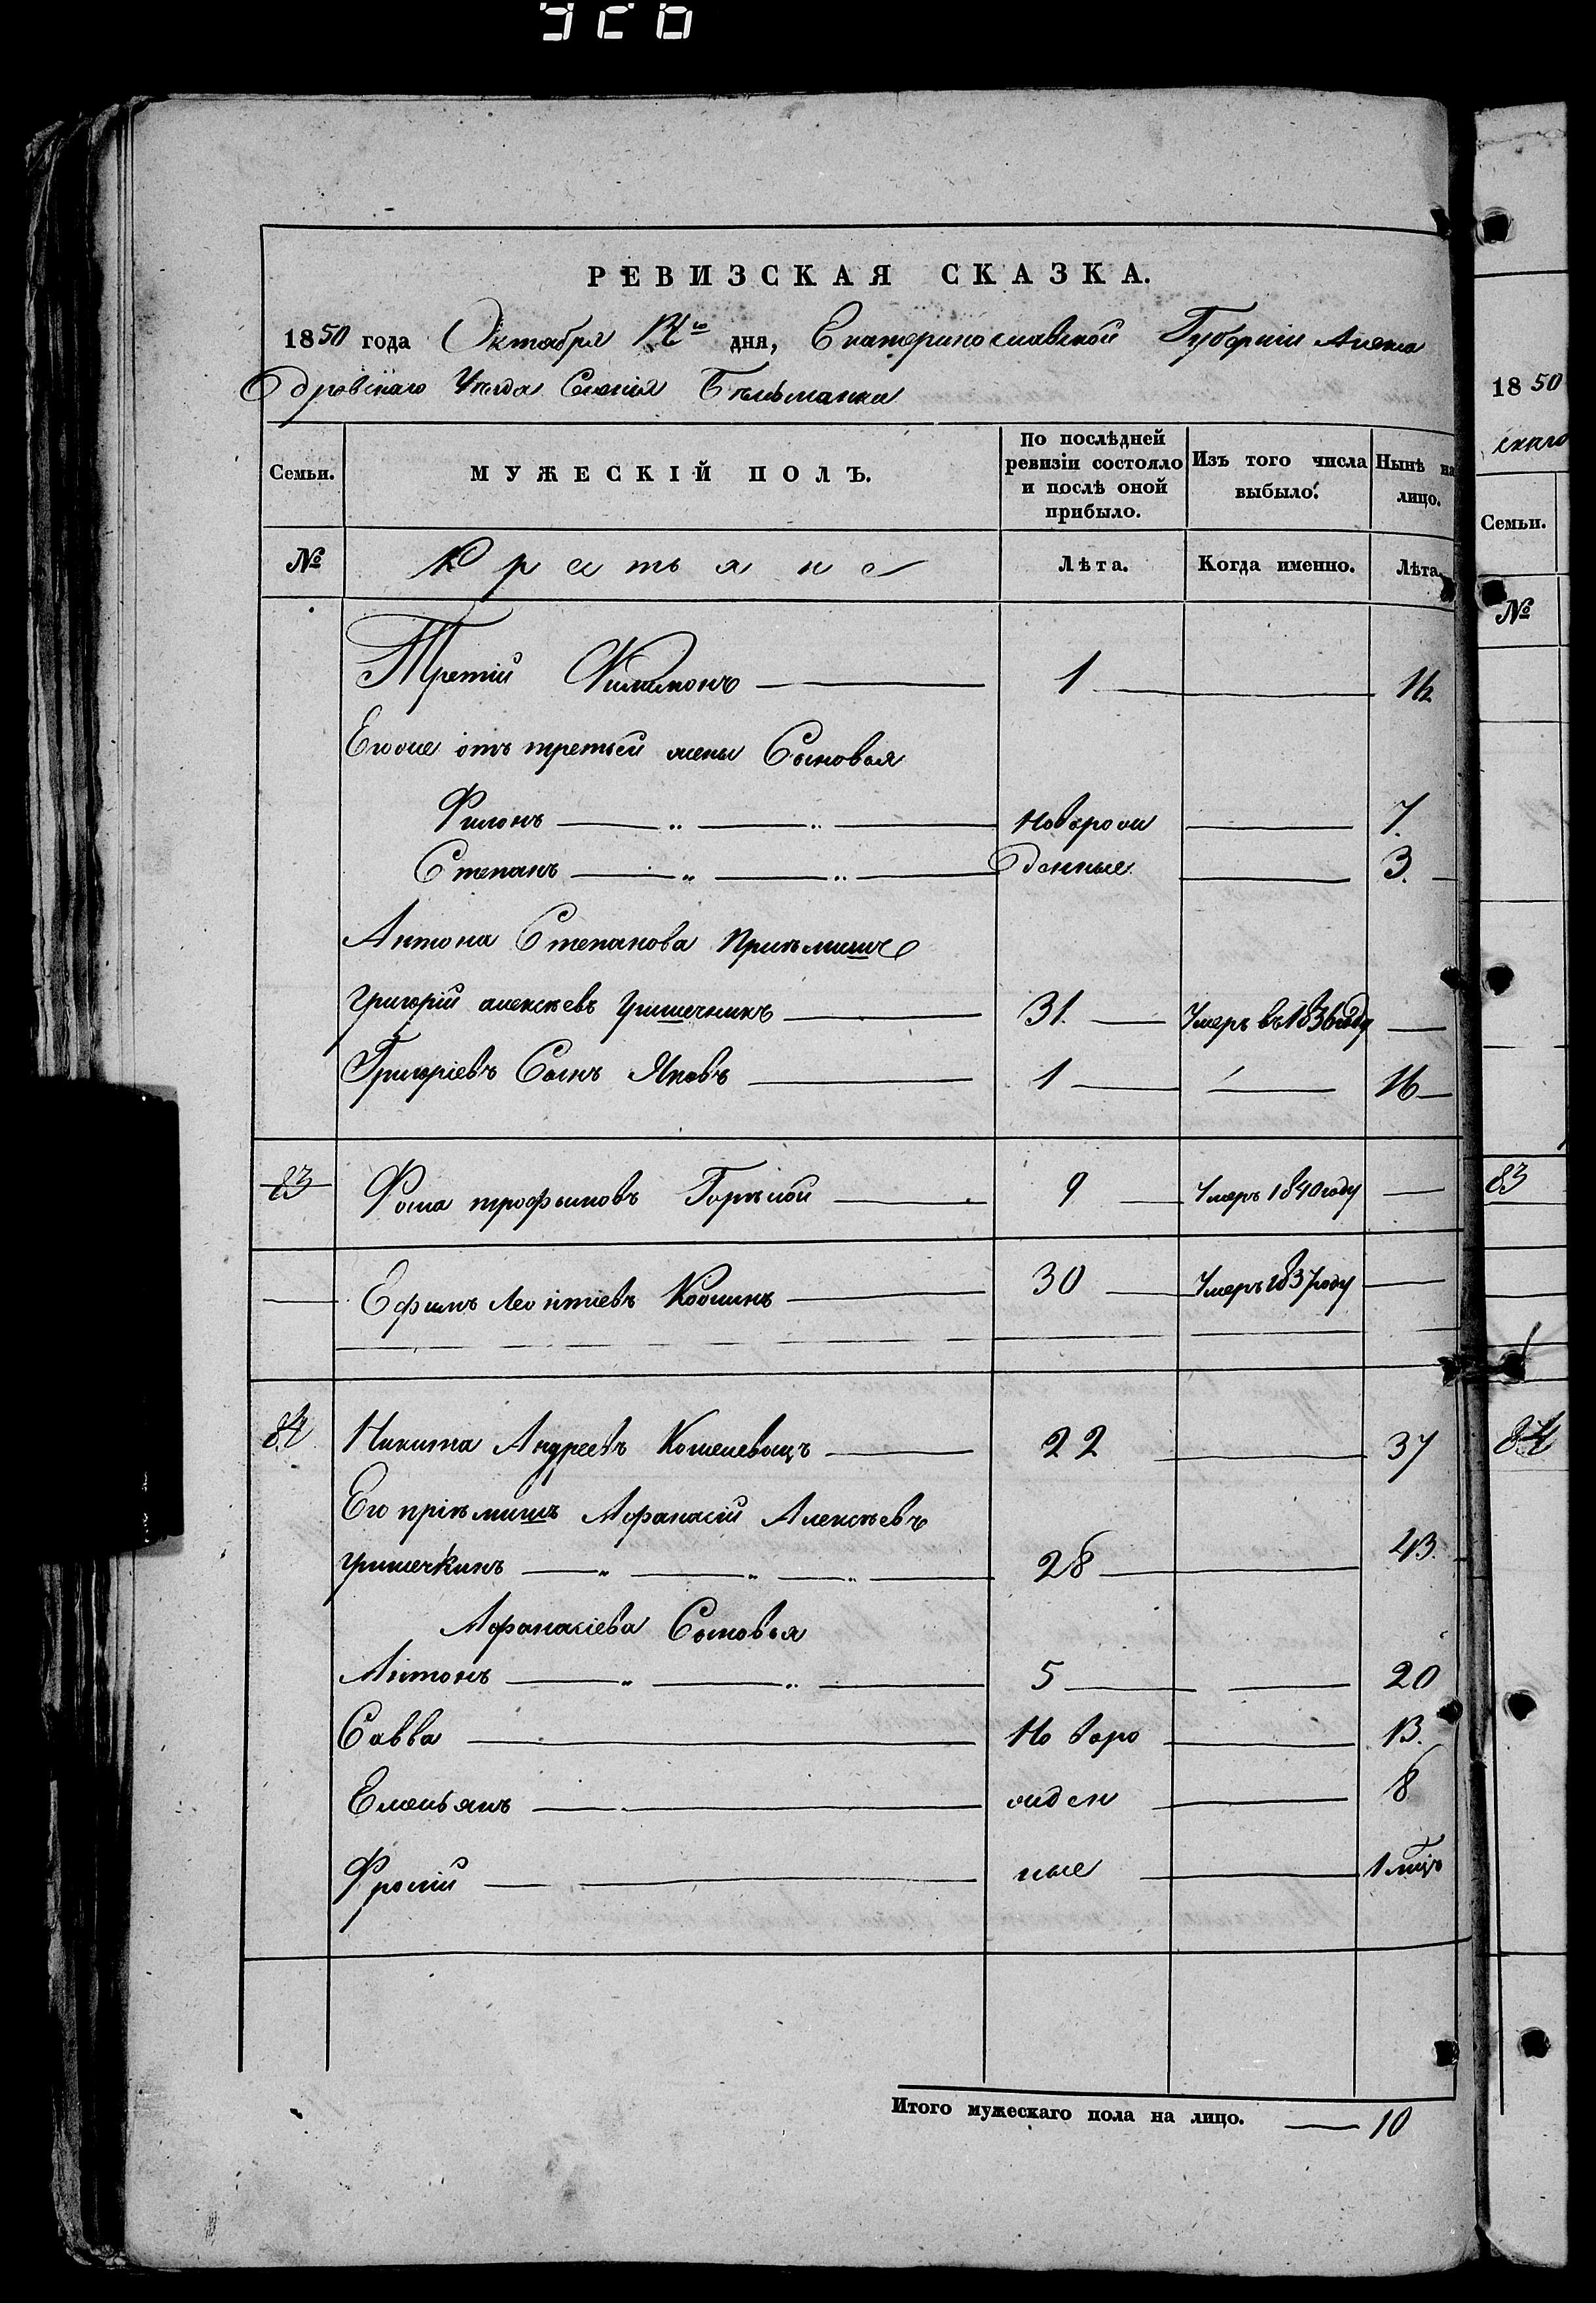 РЕВИЗСКАЯ СКАЗКА.
1850 года Октября дня, Екатеринославской Губернiи Алекса
ндровскаго Уѣзда Селенiя Бѣльманки
Семьи. МУЖЕСКІЙ ПОЛЪ. По послѣдней ревизіи состояло и послѣ оной прибыло. Изъ того числа выбыло. Нынѣ на лицо.
№ Крестьяне Лѣта. Когда именно. Лѣта.
Третiй Филимонъ 1 16
Егоже отъ третьей жены Сыновья
Филонъ новорож 7.
Степанъ денные 3.
Антона Степанова приѣмышъ
Григорiй алексѣевъ 31. Умеръ въ 1836 году
Григорiевъ Сынъ Яковъ 1 16
83 Фома трофимовъ Горѣлой 9 Умеръ 1840 году
Ефимъ Леонтiевъ 30 Умеръ 1837 году
84 Никита Андреевъ 22 37
Его прiѣмышъ Афанасiй Алексѣевъ
28 43.
Афанасiева Сыновья
Антонъ 5 20
Савва Новоро 13.
Емельянъ жден 8
ные 1 мцъ
Итого мужескаго пола на лицо. 10
1850
скаго
Семьи.
№
83
84